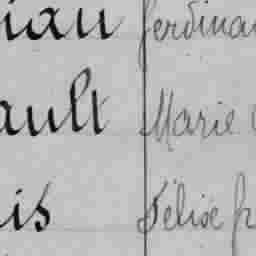 ian Ferdina
ault Marie
is Félise fr